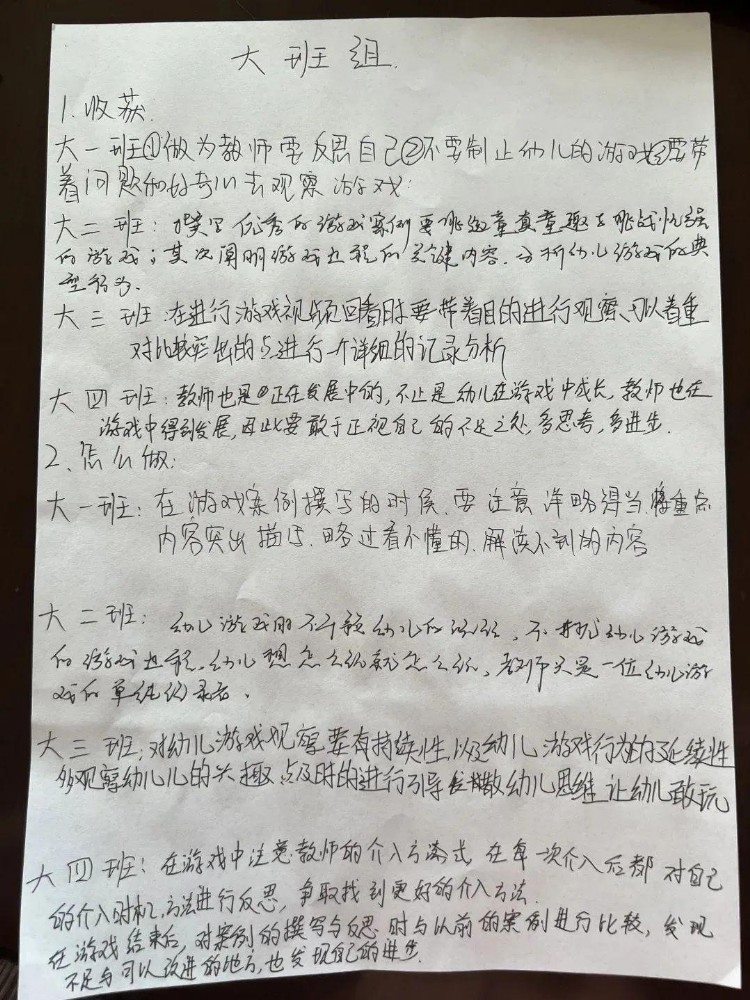 大班组.
1.收获:
大一班①做为教师要反思自己②不要制止幼儿的游戏③要带
着问题和好奇心去观察游戏.
大二班: 撰写优秀的游戏案例要挑选童真童趣与挑战性强
的游戏;其次阐明游戏过程的关键内容.分析幼儿游戏的典
型行为.
大三班:在进行游戏视频回看时要带着目的进行观察、可以着重
对比较突出的点进行一个详细的记录分析
大四班:教师也是正在发展中的,不止是幼儿在游戏中成长,教师也在
游戏中得到发展,因此要敢于正视自己的不足之处,多思考,多进步.
2、怎么做:
大一班:在游戏案例撰写的时候、要注意详略得当,将重点
内容突出描写、略过看不懂的、解读不到的内容
大二班: 幼儿游戏时不干预幼儿的,不打扰幼儿游戏
的游戏过程,幼儿想怎么玩就怎么玩,教师只是一位幼儿游
戏的单纯的记录者.
大三班:对幼儿游戏观察要有持续性,以及幼儿游戏行为的延续性
多观察幼儿的兴趣点及时的进行引导发散幼儿思维让幼儿敢玩
大四班:在游戏中注意教师的介入方式,在每一次介入后都对自己
的介入时机,方法进行反思,争取找到更好的介入方法.
在游戏结束后,对案例的撰写与反思时与以前的案例进行比较,发现
不足与可以改进的地方,也发现自己的进步.